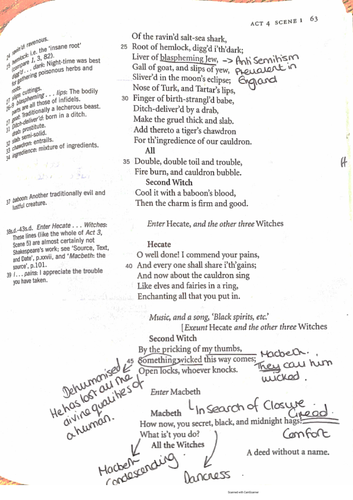 ACT 4 SCENE 1 63
Of the ravin'd salt-sea shark,
25 Root of hemlock, digg'd i'th'dark;
Liver of blaspheming Jew, -> Anti Semitism
Gall of goat, and slips of yew, Prevalent in
Sliver'd in the moon's eclipse; England
Nose of Turk, and Tartar's lips,
30 Finger of birth-strangl'd babe,
Ditch-deliver'd by a drab,
Make the gruel thick and slab.
Add thereto a tiger's chawdron
For th'ingredience of our cauldron.
All
35 Double, double toil and trouble,
Fire burn, and cauldron bubble.
Second Witch
Cool it with a baboon's blood,
Then the charm is firm and good.
Enter Hecate, and the other three Witches
Hecate
O well done! I commend your pains,
40 And every one shall share i'th'gains;
And now about the cauldron sing
Like elves and fairies in a ring,
Enchanting all that you put in.
Music, and a song, 'Black spirits, etc.'
[Exeunt Hecate and the other three Witches
Second Witch
By the pricking of my thumbs,
45 Something wicked this way comes;
Open locks, whoever knocks.
Macbeth.
They call him
wicked.
Enter Macbeth
Macbeth In Search of Closure
How now, you secret, black, and midnight hags!
Comfort
What is't you do?
All the Witches
A deed without a name.
Dehumanised
He has lost all the
divine qualities of
a human.
Macbeth
condescending
Darkness
24 ravin'd ravenous.
hemlock i.e. the 'insane root'
dark: Night-time was best
for gathering poisonous herbs and
roots.
cuttings.
lips: The bodily
parts are all of those of infidels.
goat Traditionally a lecherous beast.
Ditch-deliver'd born in a ditch.
drab prostitute.
slab semi-solid.
33 chawdron entrails.
34 ingredience: mixture of ingredients.
37 baboon: Another traditionally evil and
lustful creature.
38s.d.-43s.d. Enter Hecate . . . Witches:
These lines (like the whole of Act 3,
Scene 5) are almost certainly not
Shakespeare's work; see 'Source, Text,
and Date', p.xxvii, and 'Macbeth: the
source', p.101.
39 I . . . pains: I appreciate the trouble
you have taken.
Scanned with CamScanner